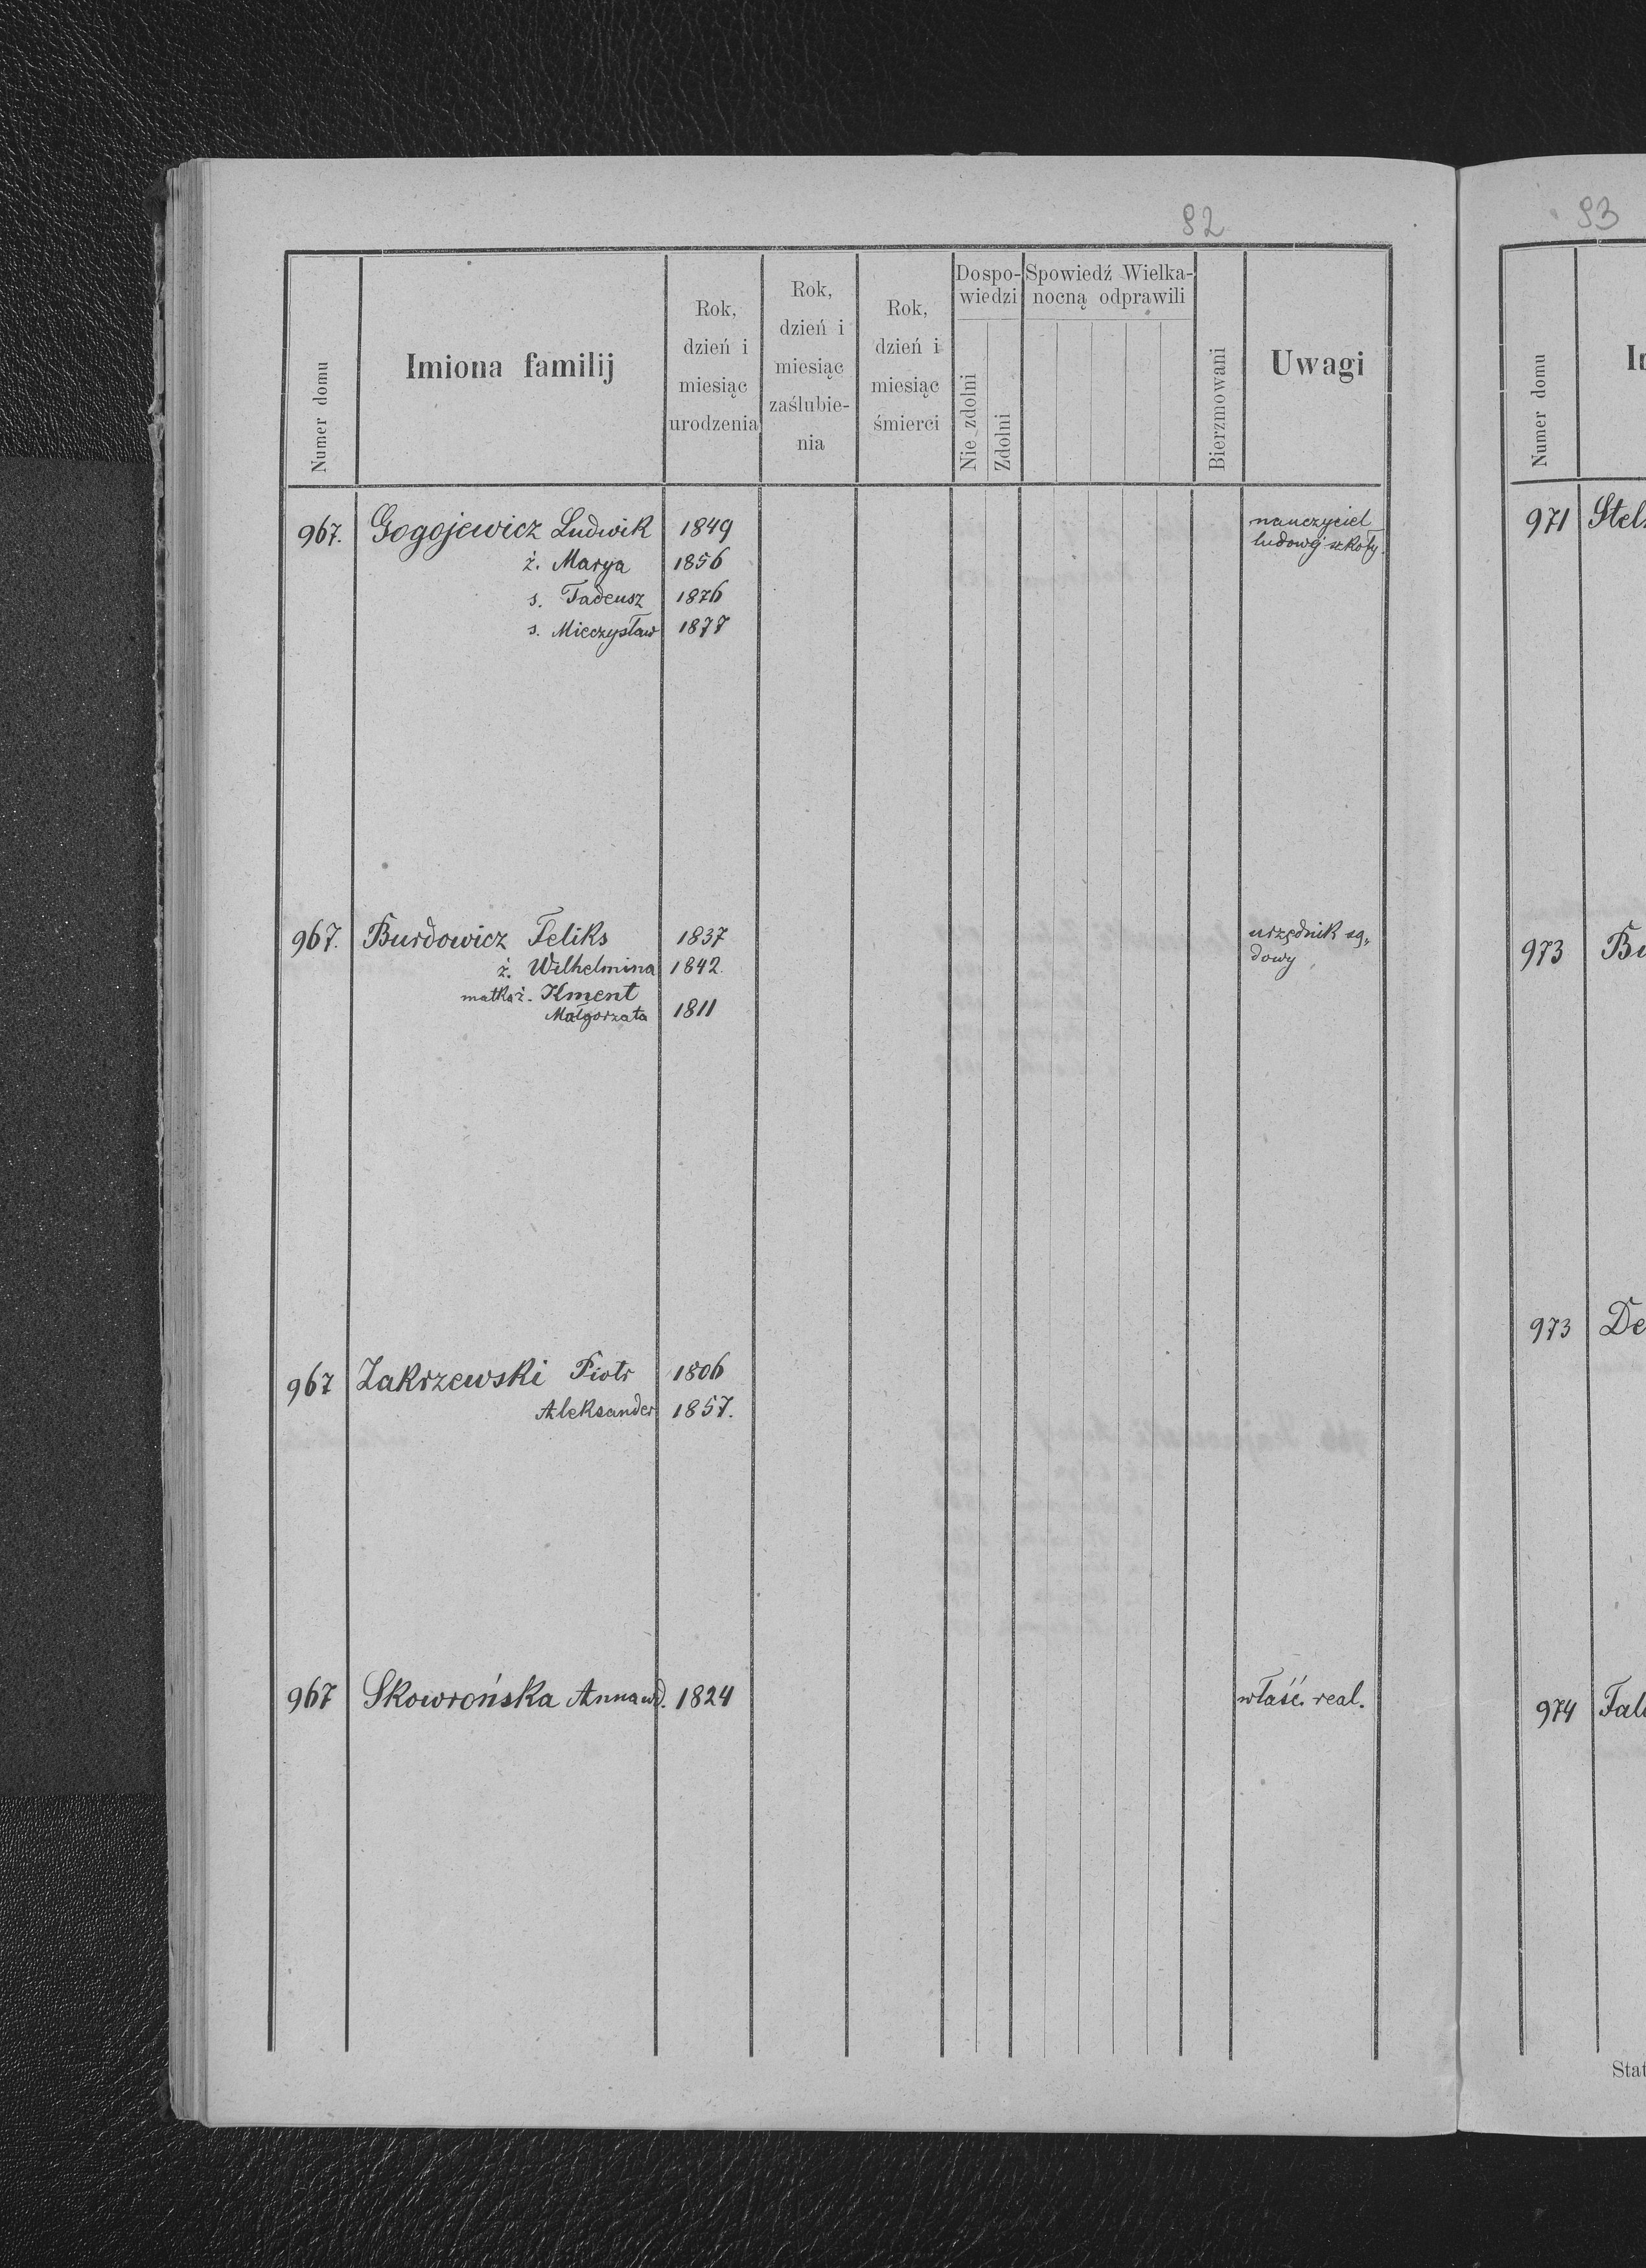 92
Numer domu
Imiona familij
Rok,
dzień i
miesiąc
urodzenia
Rok,
dzień i
miesiąc
zaślubie-
nia
Rok,
dzień i
miesiąc
śmierci
Dospo-
wiedzi
Nie zdolni
Zdolni
Spowiedź Wielka-
nocną odprawili
Bierzmowani
Uwagi
967. Gogojewicz Ludwik 1849 nauczyciel
ludowej szkoły.
ż. Marya 1856
s. Tadeusz 1876
s. Mieczysław 1877
967. Burdowicz Feliks 1837 urzędnik są„
dowy
ż. Wilhelmina 1842.
matka ż. Kment
Małgorzata 1811
967 Zakrzewski Piotr 1806
Aleksander 1857.
967 Skowrońska Anna wd. 1824 właść. real.
93
Numer domu
971 Stel
973 Bu
973 De
974 Fal
Stat